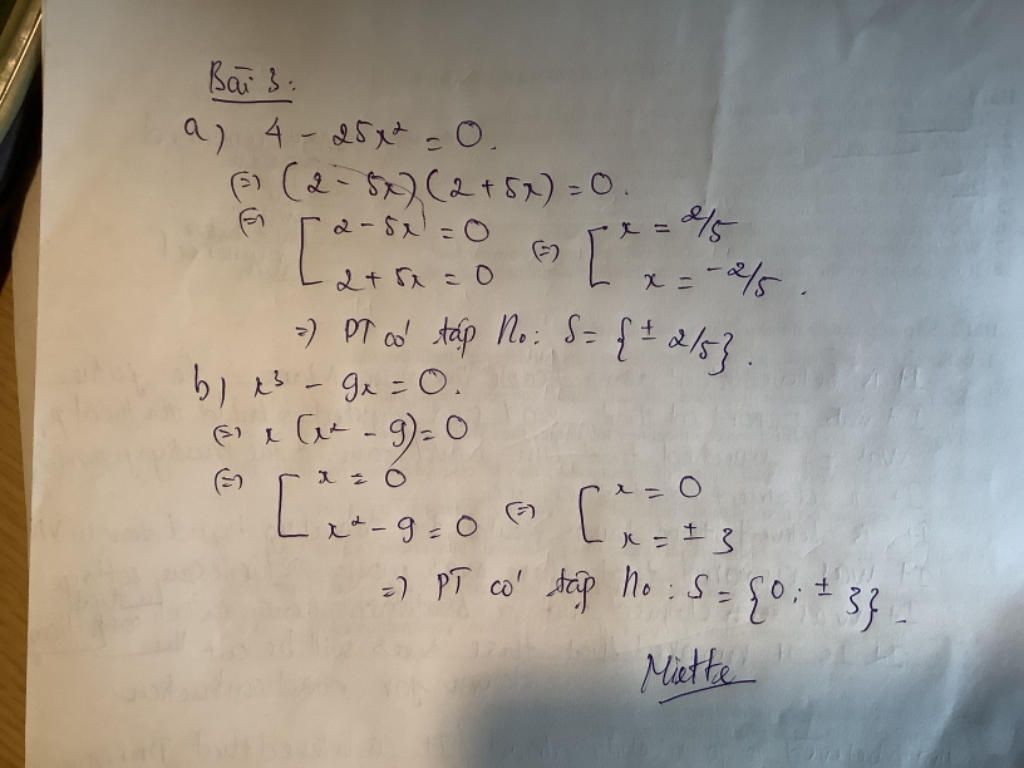 Bài 3:
a) 4 - 25x² = 0.
(=) (2 - 5x)(2 + 5x) = 0.
(=) [ 2 - 5x = 0 (=) [ x = 2/5
2 + 5x = 0 x = -2/5.
=) PT có tập No: S = {± 2/5}.
b) x³ - 9x = 0.
(=) x (x² - 9) = 0
(=) [ x = 0 (=) [ x = 0
x² - 9 = 0 x = ± 3
=) PT có tập No: S = {0; ± 3}.
Miette